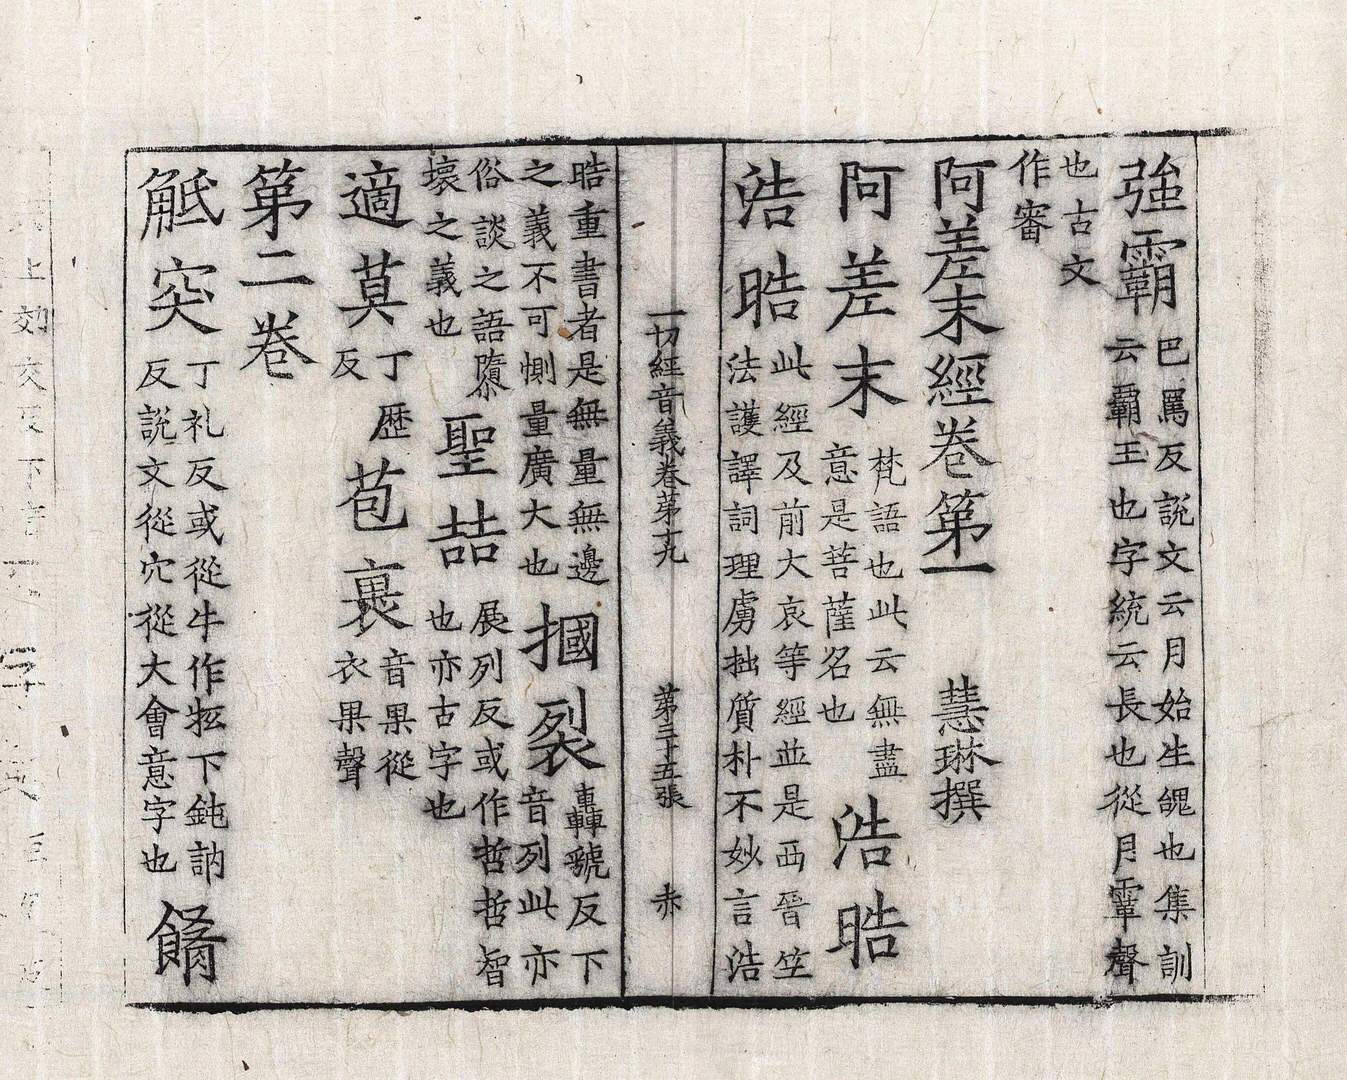 強霸
巴罵反說文云月始生䰟也集訓
云霸王也字統云長也從月䩗聲
也古文
作審
阿差末經卷第一 慧琳撰
阿差末
梵語也此云無盡
意是菩薩名也
浩晧
浩晧
此經及前大哀等經並是西晉竺
法護譯詞理虜拙質朴不妙言浩
一切經音義卷第十九 第三十五張 赤
晧重書者是無量無邊
之義不可惻量廣大也
摑裂
轟虢反下
音列此亦
俗談之語隳
壞之義也
聖喆
展列反或作哲哲智
也亦古字也
適莫
丁歷
反
苞裹
音果從
衣果聲
第二卷
觝突
丁礼反或從牛作牴下鈍訥
反說文從穴從犬會意字也
餚